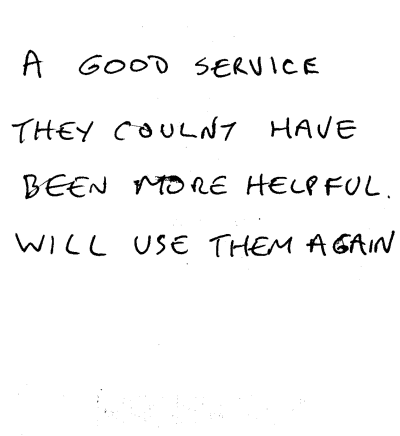 A GOOD SERVICE
THEY COULNT HAVE
BEEN MORE HELPFUL.
WILL USE THEM AGAIN